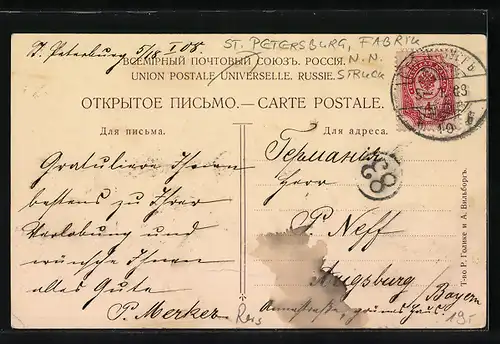 St. Petersburg 5/18 I 08.
ST. PETERSBURG, FABRIK
N.N.
STRUCK
ВСЕМІРНЫЙ ПОЧТОВЫЙ СОЮЗЪ. РОССІЯ.
UNION POSTALE UNIVERSELLE. RUSSIE.
ОТКРЫТОЕ ПИСЬМО. — CARTE POSTALE.
Для письма.
Для адреса.
Gratuliere Ihnen
bestens zu Ihrer
Verlobung und
wünsche Ihnen
alles Gute
P. Merker
Германія
Herr
P. Neff
Augsburg
Bayern
Annastraße, grünes Haus
38
Т-во Р. Голике и А. Вильборгъ.
Reis
19,-